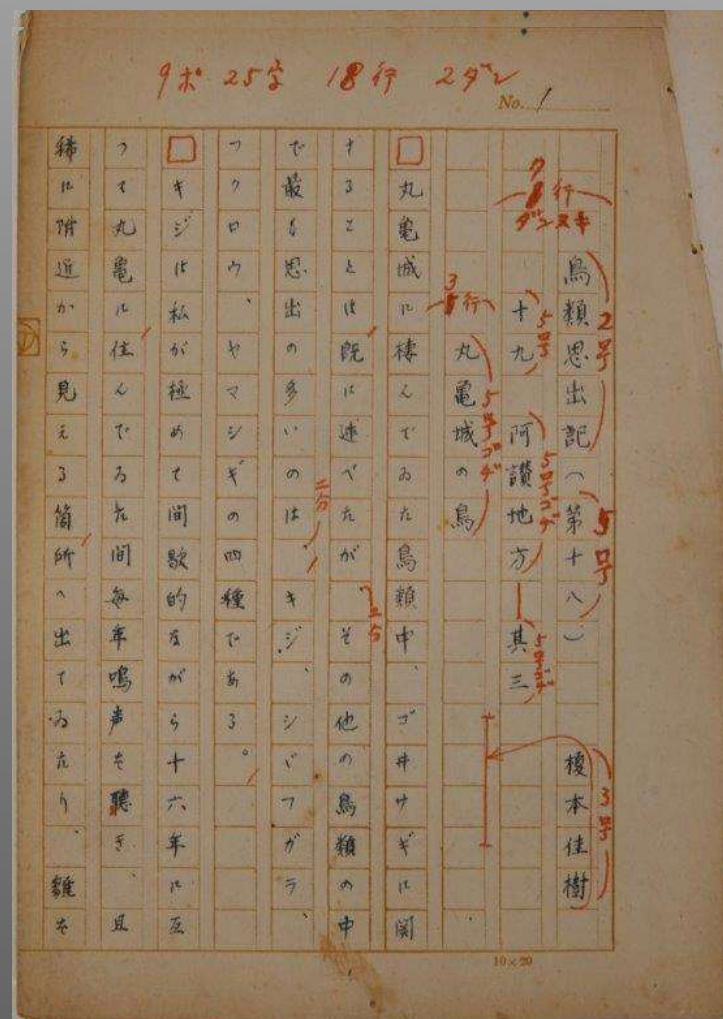 9ポ 25字 18行 2ダン
No. 1
鳥類思出記(第十八) 榎本佳樹
2号
5号
3号
行
ダンヌキ
十九 阿讃地方―其三
5号
5号ゴヂ
5号ゴヂ
丸亀城の鳥
3行
5号ゴヂ
丸亀城に棲んでゐた鳥類中、ゴヰサギに関
することは既に述べたが その他の鳥類の中
二分
で最も思出の多いのは、キジ、シジフガラ、
二分
フクロウ、ヤマシギの四種である。
キジは私が極めて間歇的ながら十六年に亙
つて丸亀に住んでゐた間毎年鳴声を聴き、且
稀に附近から見える箇所へ出てゐたり、雛を
10×20